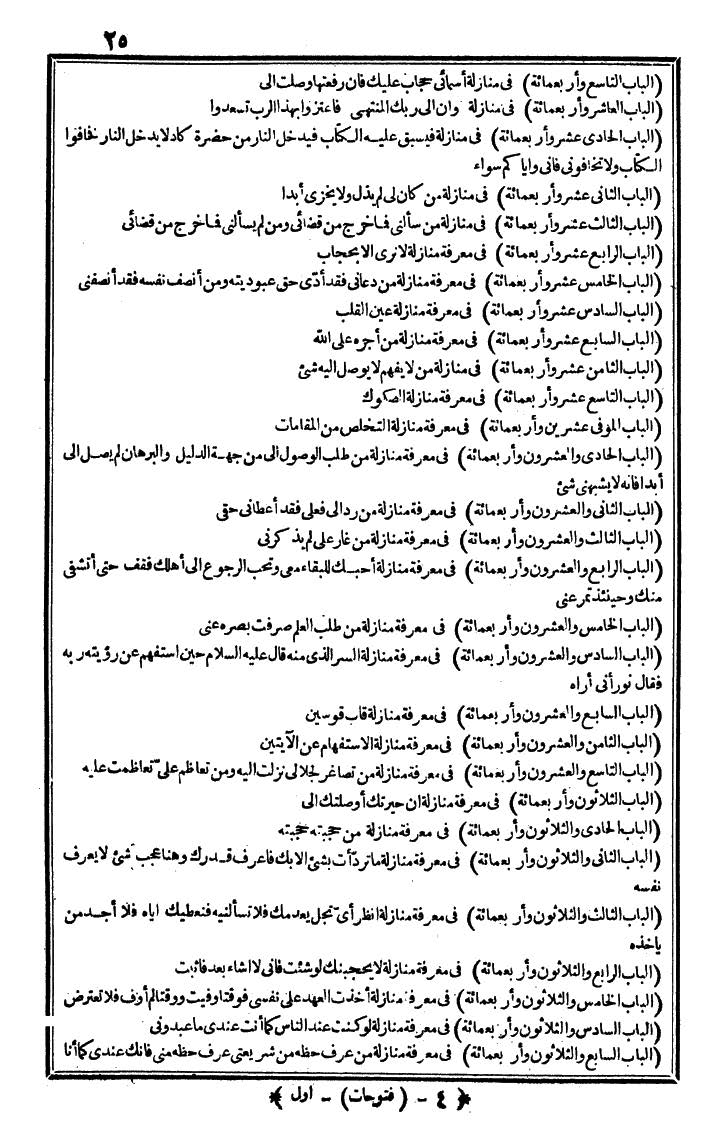 ٢٥
(الباب التاسع وأر بعمائة) فى منازلة أسمائى حجاب عليك فان رفعتها وصلت الى
(الباب العاشر وأر بعمائة) فى منازلة وان الى ربك المنتهى فاعتزوا بهذا الرب تسعدوا
(الباب الحادى عشر وأر بعمائة) فى منازلة فيسبق عليه الكتاب فيدخل النار من حضرة كاد لا يدخل النار فخافوا
الكتاب ولا تخافونى فانى واياكم سواء
(الباب الثانى عشر وأر بعمائة) فى منازلة من كان لى لم يذل ولا يخزى أبدا
(الباب الثالث عشر وأر بعمائة) فى منازلة من سألنى فماخرج من قضائى ومن لم يسألنى فماخرج من قضائى
(الباب الرابع عشر وأر بعمائة) فى معرفة منازلة لا نرى الا بحجاب
(الباب الخامس عشر وأر بعمائة) فى معرفة منازلة من دعانى فقد أدّى حق عبوديته ومن أنصف نفسه فقد أنصفنى
(الباب السادس عشر وأر بعمائة) فى معرفة منازلة عين القلب
(الباب السابع عشر وأر بعمائة) فى معرفة منازلة من أجره على الله
(الباب الثامن عشر وأر بعمائة) فى منازلة من لا يفهم لا يوصل اليه شئ
(الباب التاسع عشر وأر بعمائة) فى معرفة منازلة الصكوك
(الباب الموفى عشرين وأر بعمائة) فى معرفة منازلة التخلص من المقامات
(الباب الحادى والعشرون وأر بعمائة) فى معرفة منازلة من طلب الوصول الى من جهة الدليل والبرهان لم يصل الى
أبدا فانه لا يشبهنى شئ
(الباب الثانى والعشرون وأر بعمائة) فى معرفة منازلة من رد الى فعلى فقد أعطانى حقى
(الباب الثالث والعشرون وأر بعمائة) فى معرفة منازلة من غار على لم يذكرنى
(الباب الرابع والعشرون وأر بعمائة) فى معرفة منازلة أحبك للبقاء معى وتحب الرجوع الى أهلك فقف حتى أتشفى
منك وحينئذ تمر عنى
(الباب الخامس والعشرون وأر بعمائة) فى معرفة منازلة من طلب العلم صرفت بصره عنى
(الباب السادس والعشرون وأر بعمائة) فى معرفة منازلة السر الذى منه قال عليه السلام حين استفهم عن رؤيته ربه
فقال نور أنى أراه
(الباب السابع والعشرون وأر بعمائة) فى معرفة منازلة قاب قوسين
(الباب الثامن والعشرون وأر بعمائة) فى معرفة منازلة الاستفهام عن الآيتين
(الباب التاسع والعشرون وأر بعمائة) فى معرفة منازلة من تصاغر لجلالى نزلت اليه ومن تعاظم علىّ تعاظمت عليه
(الباب الثلاثون وأر بعمائة) فى معرفة منازلة ان حيرتك أوصلتك الى
(الباب الحادى والثلاثون وأر بعمائة) فى معرفة منازلة من حجبته حجبته
(الباب الثانى والثلاثون وأر بعمائة) فى معرفة منازلة ما تردّأت بشئ الا بك فاعرف قدرك وهذا عجب شئ لا يعرف
نفسه
(الباب الثالث والثلاثون وأر بعمائة) فى معرفة منازلة انظر أىّ تجل يعدمك فلا تسألنيه فنعطيك اياه فلا أجد من
ياخذه
(الباب الرابع والثلاثون وأر بعمائة) فى معرفة منازلة لا يحجبنك لوشئت فانى لا اشاء بعد فاثبت
(الباب الخامس والثلاثون وأر بعمائة) فى معرفة منازلة أخذت العهد على نفسى فوقتا وفيت ووقتا لم أوف فلا تعترض
(الباب السادس والثلاثون وأر بعمائة) فى معرفة منازلة لو كنت عند الناس كما أنت عندى ما عبدونى
(الباب السابع والثلاثون وأر بعمائة) فى معرفة منازلة من عرف حظه من شريعتى عرف حظه منى فانك عندى كما أنا
﴿ ٤ - (فتوحات) - اول ﴾